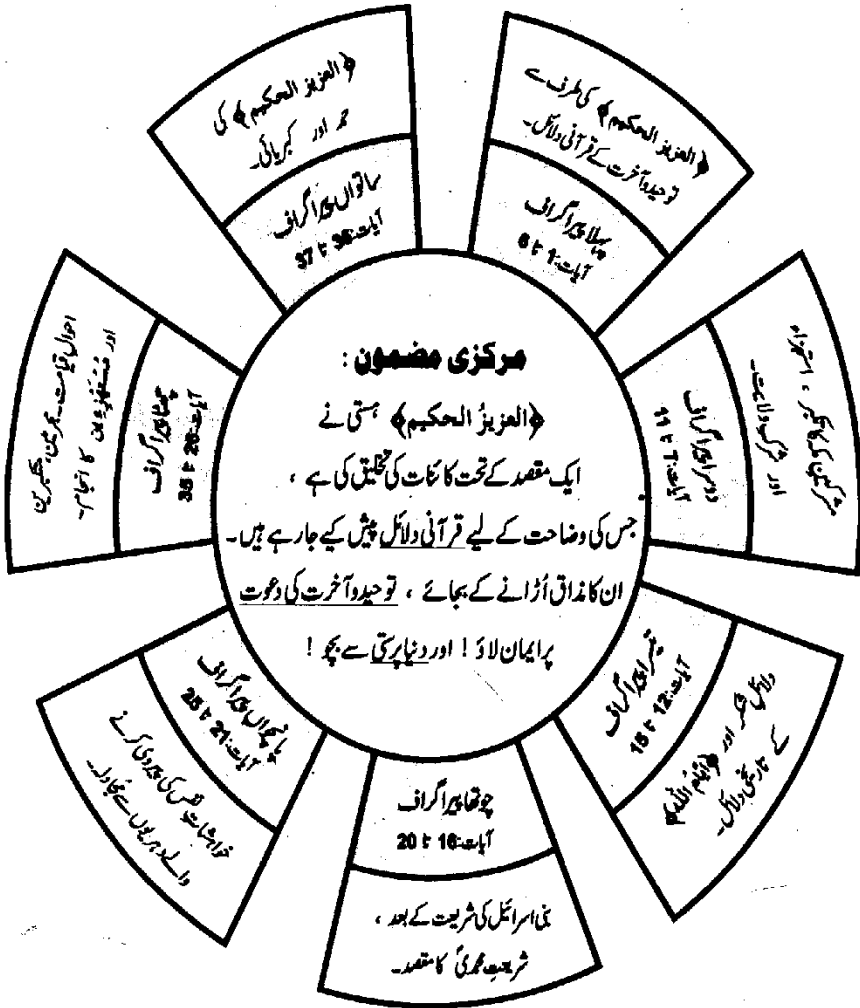 مرکزی مضمون :
﴿العزیزُ الحکیم﴾ ہستی نے
ایک مقصد کے تحت کائنات کی تخلیق کی ہے ،
جس کی وضاحت کے لیے قرآنی دلائل پیش کیے جا رہے ہیں۔
ان کا مذاق اُڑانے کے بجائے ، توحید و آخرت کی دعوت
پر ایمان لاؤ ! اور دنیا پرستی سے بچو !
﴿العزیز الحکیم﴾ کی طرف سے
توحید و آخرت کے قرآنی دلائل۔
پہلا پیراگراف
آیات:1 تا 6
مشرکینِ مکہ کا تکبر ، استہزاء
اور شرکِ ولایت۔
دوسرا پیراگراف
آیات:7 تا 11
دلائلِ شکر اور ﴿ایّامُ اللہ﴾
کے تاریخی دلائل۔
تیسرا پیراگراف
آیات:12 تا 15
چوتھا پیراگراف
آیات:16 تا 20
بنی اسرائیل کی شریعت کے بعد ،
شریعتِ محمدیؐ کا مقصد۔
پانچواں پیراگراف
آیات:21 تا 25
خواہشاتِ نفس کی پیروی کرنے
والے دہریوں سے مجادلہ۔
احوالِ قیامت۔ مجرمین، متکبرین
اور مُسْتَہْزِءِین کا انجام۔
چھٹا پیراگراف
آیات:26 تا 35
﴿العزیز الحکیم﴾ کی
حمد اور کبریائی۔
ساتواں پیراگراف
آیات:36 تا 37